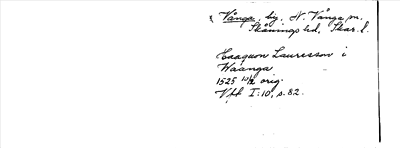 Vånga, by, N. Vånga sn.
Skånings hd, Skar. l.
Haaquon Lauresson i
Waanga
1525 orig.
Vfl I:10, s. 82.